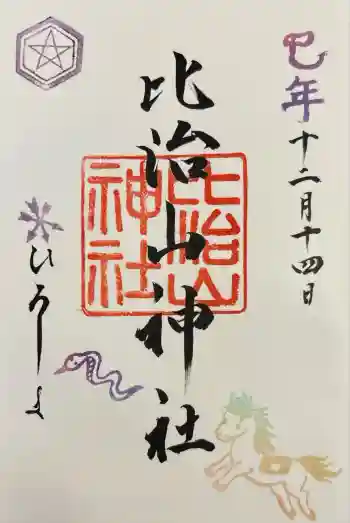 巳年
十二月十四日
比治山神社
比治山
神社
ひろしま